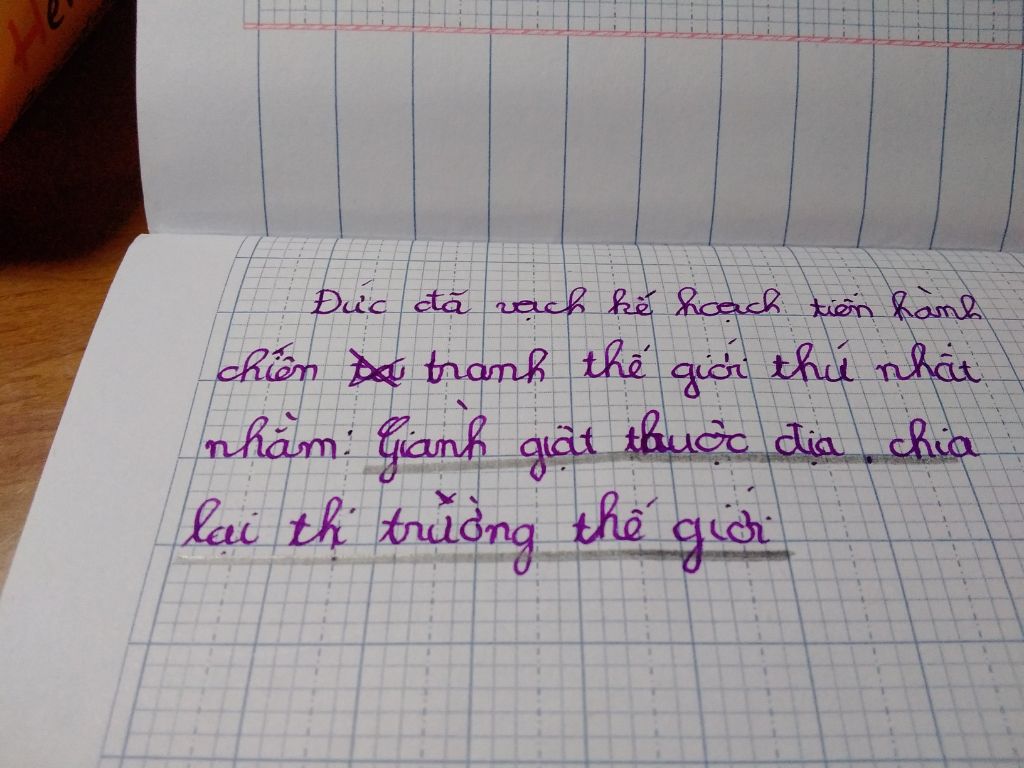 Đức đã vạch kế hoạch tiến hành
chiến tranh thế giới thứ nhất
nhằm: Giành giật thuộc địa, chia
lại thị trường thế giới